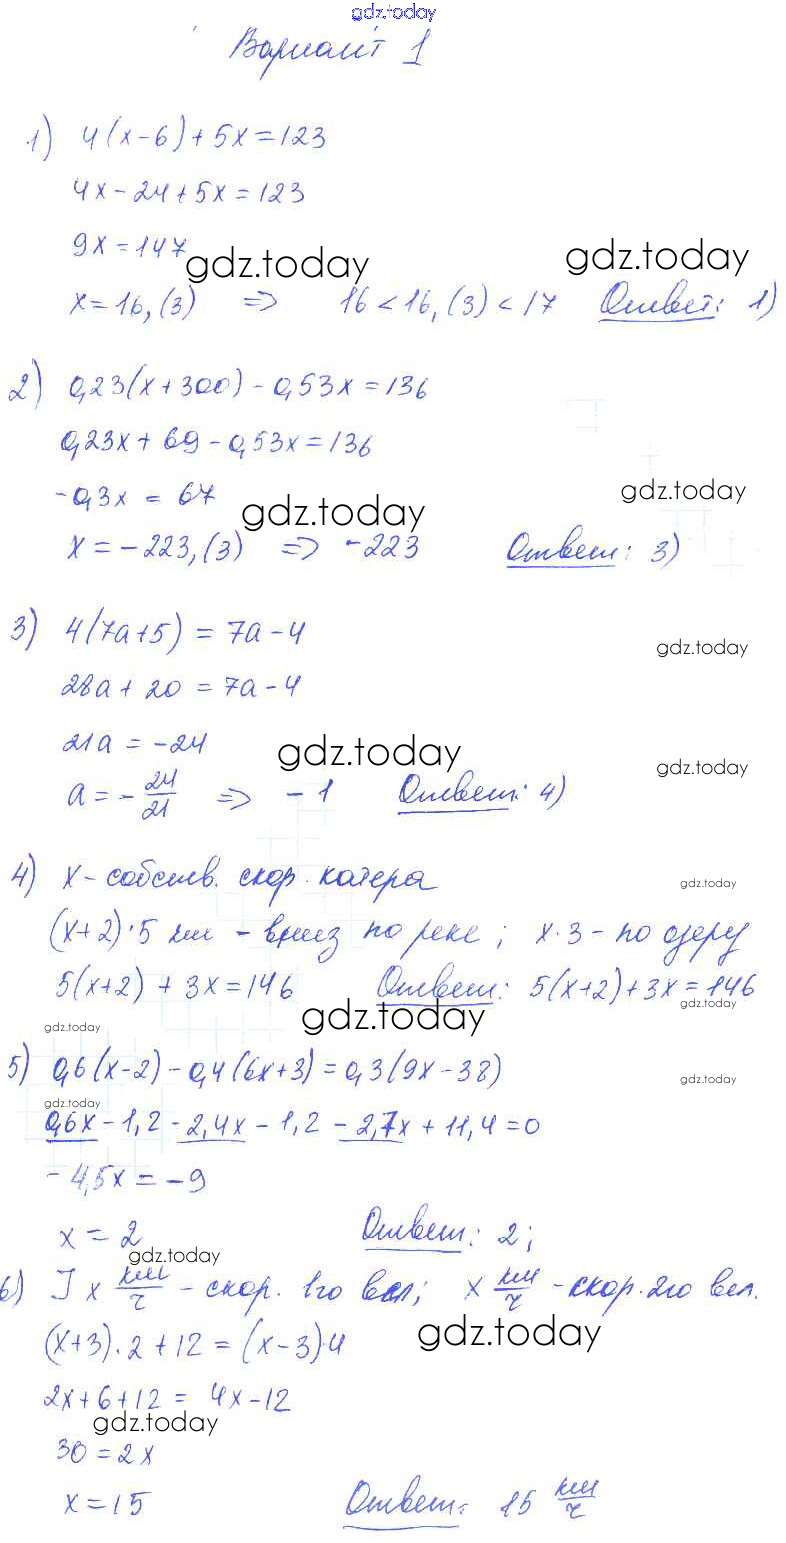 gdz.today
Вариант 1
1) 4(x-6)+5x=123
4x-24+5x=123
9x=147
gdz.today gdz.today
x=16,(3) => 16<16,(3)<17 Ответ: 1)
2) 0,23(x+300)-0,53x=136
0,23x+69-0,53x=136
-0,3x = 67
gdz.today gdz.today
x=-223,(3) => -223 Ответ: 3)
3) 4(7a+5) = 7a-4
gdz.today
28a+20 = 7a-4
21a = -24
gdz.today gdz.today
a=-24/21 => -1 Ответ: 4)
4) x-собств. скор. катера
gdz.today
(x+2)·5 км - вниз по реке; x·3-по озеру
5(x+2) + 3x=146 Ответ: 5(x+2)+3x=146
gdz.today gdz.today
gdz.today
5) 0,6(x-2)-0,4(6x+3)=0,3(9x-38)
gdz.today
gdz.today
0,6x-1,2-2,4x-1,2-2,7x+11,4=0
-4,5x=-9
x=2 Ответ: 2;
gdz.today
6) I x км/ч - скор. 1го вел; x км/ч - скор. 2го вел.
gdz.today
(x+3)·2+12=(x-3)·4
2x+6+12= 4x-12
gdz.today
30=2x
x=15 Ответ: 15 км/ч